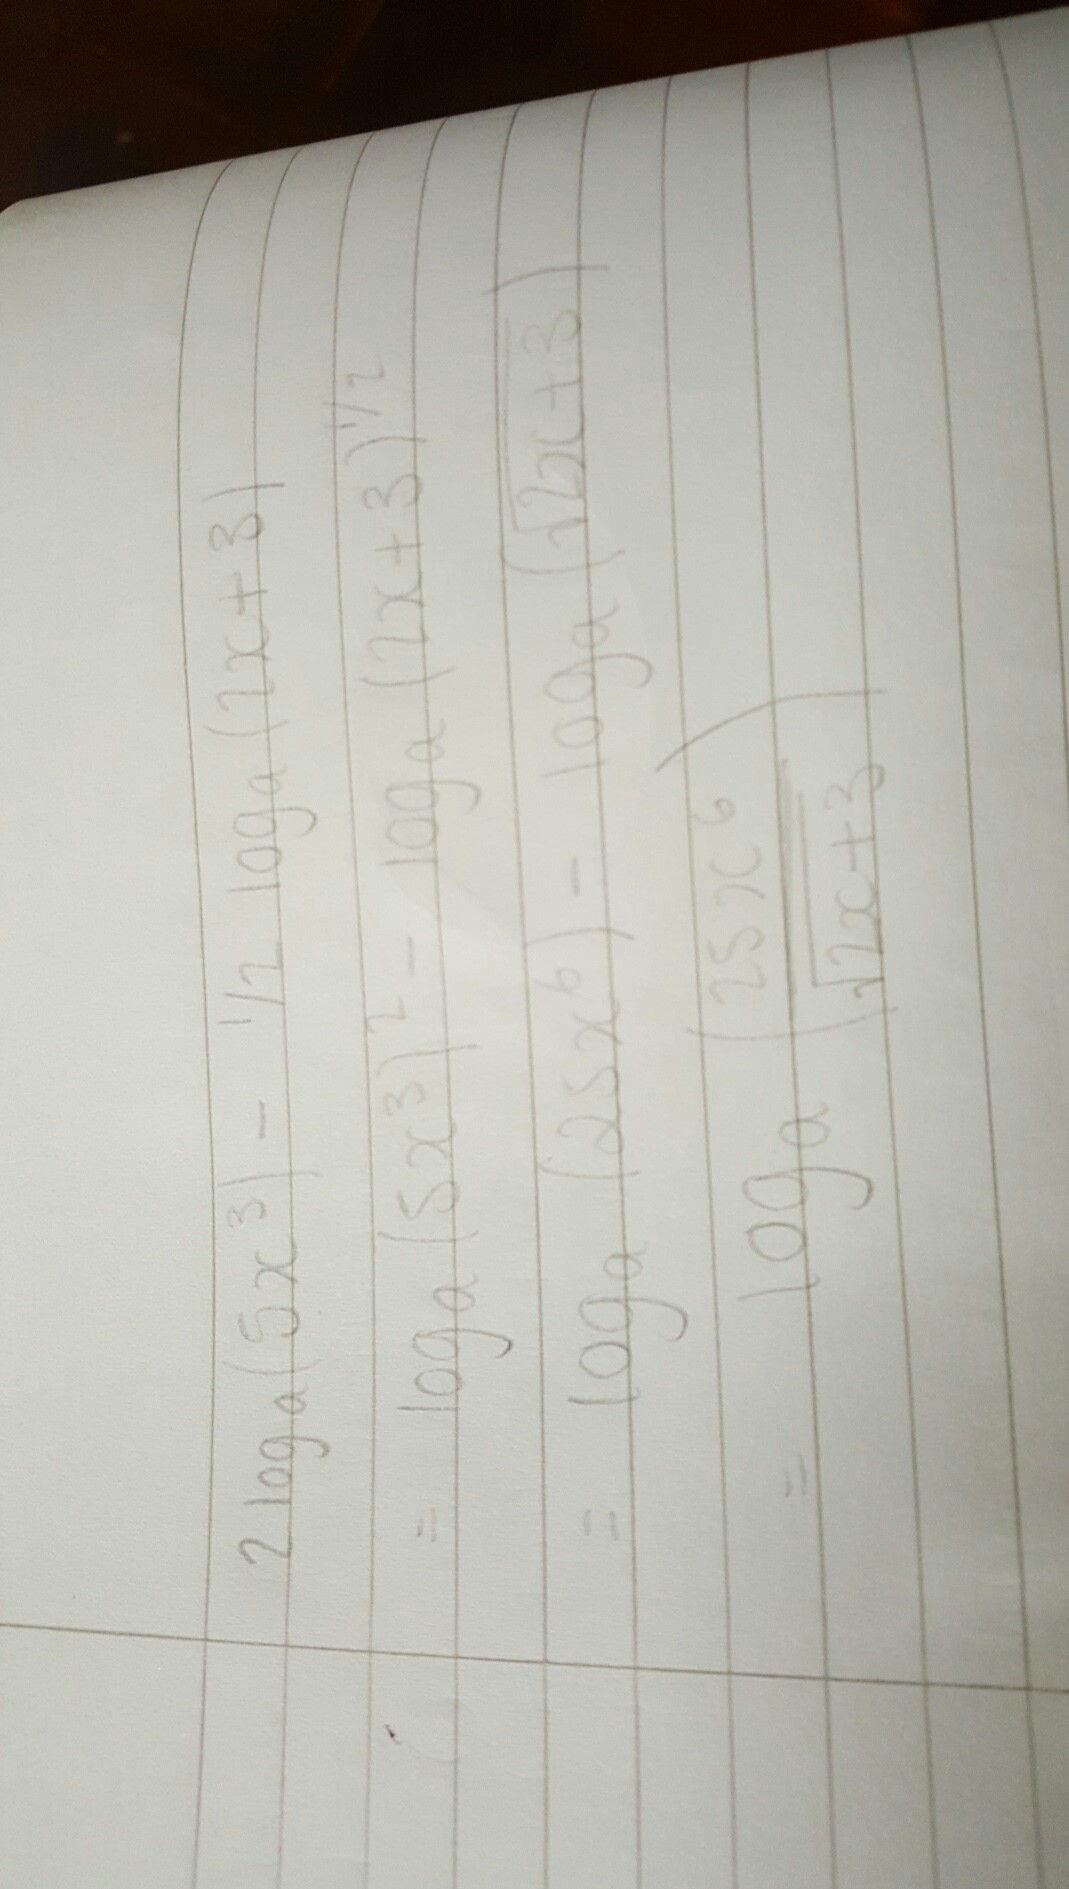 2 loga(5x³) - 1/2 loga(2x+3)
= loga(5x³)² - loga(2x+3)^1/2
= loga(25x⁶) - loga(√2x+3)
= loga(25x⁶/√2x+3)